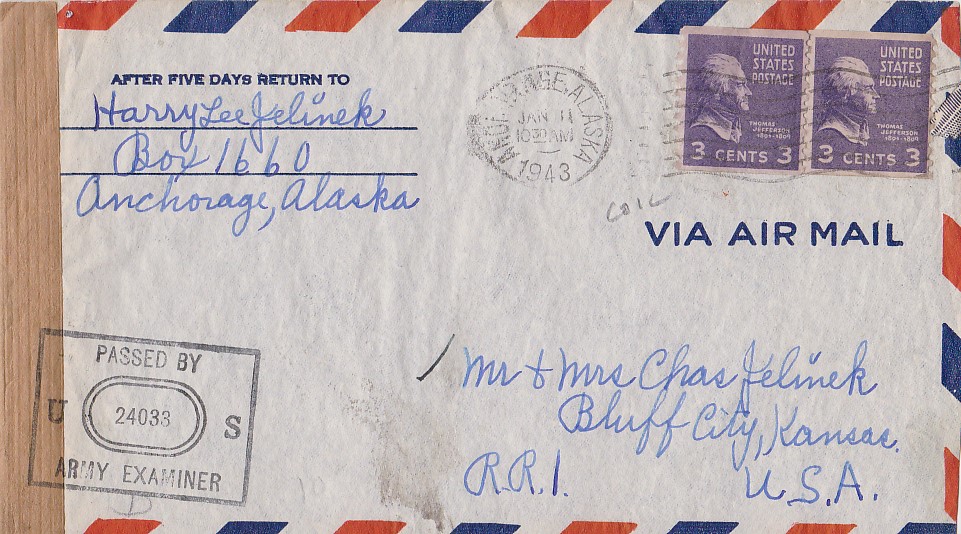 AFTER FIVE DAYS RETURN TO
Harry Lee Jelinek
Box 1660
Anchorage, Alaska
ANCHORAGE, ALASKA
JAN 11
10 30 AM
1943
UNITED
STATES
POSTAGE
THOMAS
JEFFERSON
1801-1809
3 CENTS 3
UNITED
STATES
POSTAGE
THOMAS
JEFFERSON
1801-1809
3 CENTS 3
COIL
VIA AIR MAIL
PASSED BY
U 24033 S
ARMY EXAMINER
Mr & Mrs Chas Jelinek
Bluff City, Kansas.
R.R.1. U.S.A.